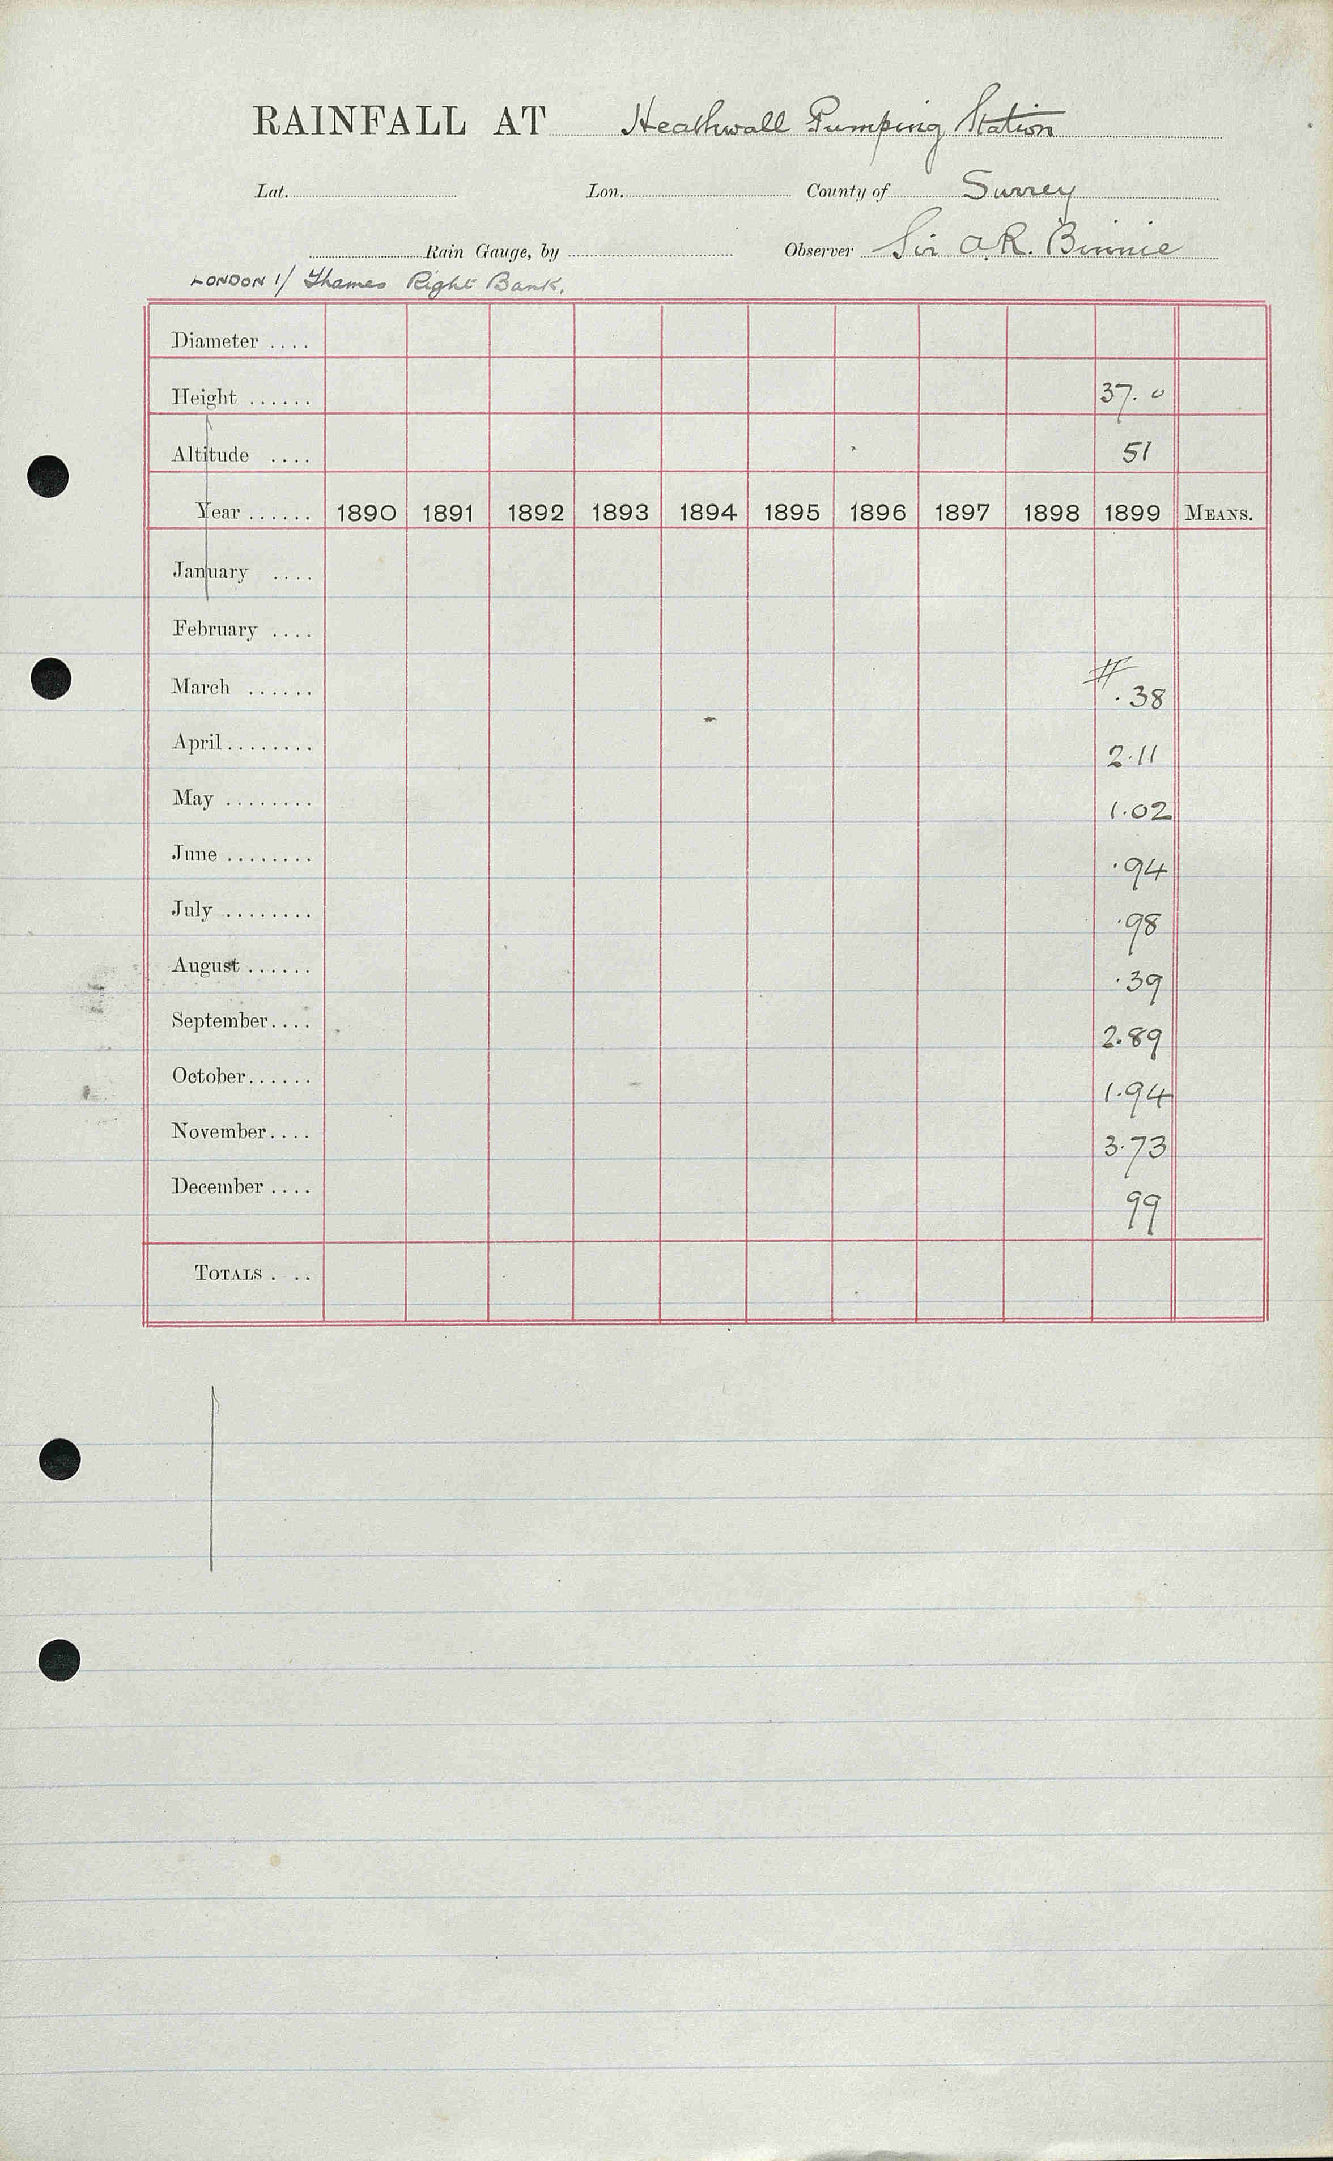 RAINFALL AT Heathwall Pumping Station
Lat. Lon. County of Surrey
Rain Gauge, by Observer Sir A.R. Binnie
LONDON 1/ Thames Right Bank.
Diameter ....
Height ...... 37.0
Altitude .... 51
Year ...... 1890 1891 1892 1893 1894 1895 1896 1897 1898 1899 MEANS.
January ....
February ....
March ...... # .38
April ........ 2.11
May ........ 1.02
June ........ .94
July ........ .98
August ...... .39
September.... 2.89
October...... 1.94
November.... 3.73
December .... 99
TOTALS . ..